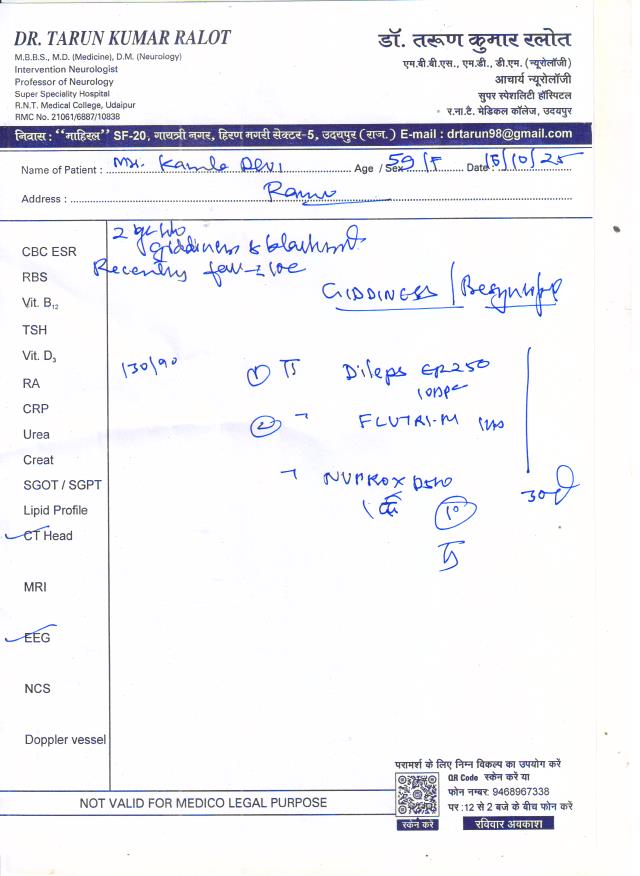 DR. TARUN KUMAR RALOT
M.B.B.S., M.D. (Medicine), D.M. (Neurology)
Intervention Neurologist
Professor of Neurology
Super Speciality Hospital
R.N.T. Medical College, Udaipur
RMC No. 21061/6887/10838
डॉ. तरूण कुमार रलोत
एम.बी.बी.एस., एम.डी., डी.एम. (न्यूरोलॉजी)
आचार्य न्यूरोलॉजी
सुपर स्पेशलिटी हॉस्पिटल
र.ना.टै. मेडिकल कॉलेज, उदयपुर
निवास : "माहिरल" SF-20, गायत्री नगर, हिरण मगरी सेक्टर-5, उदयपुर (राज.) E-mail : drtarun98@gmail.com
Name of Patient : Kamla Devi Age / Sex 59/F Date : 15/10/25
Address :
2
giddiness
CBC ESR
Recently
RBS
GIDDINESS /
Vit. B12
TSH
Vit. D3
130/90
① Dileps ER 250
RA
CRP
② FLUTRI-M
Urea
Creat
NUPROX
SGOT / SGPT
30
Lipid Profile
1 10
CT Head
MRI
EEG
NCS
Doppler vessel
परामर्श के लिए निम्न विकल्प का उपयोग करें
QR Code स्केन करें या
फोन नम्बर: 9468967338
पर :12 से 2 बजे के बीच फोन करें
स्केन करें
रविवार अवकाश
NOT VALID FOR MEDICO LEGAL PURPOSE